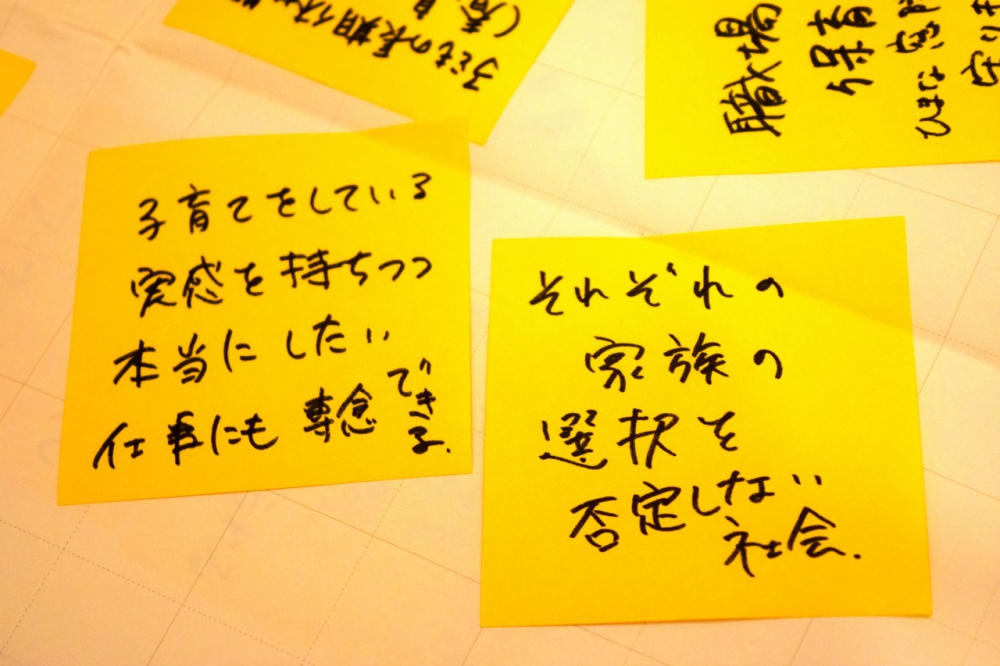 子どもの長期休
職場
保育
ひまな
守り
子育てをしている
実感を持ちつつ
本当にしたい
仕事にも専念できる.
それぞれの
家族の
選択を
否定しない
社会.